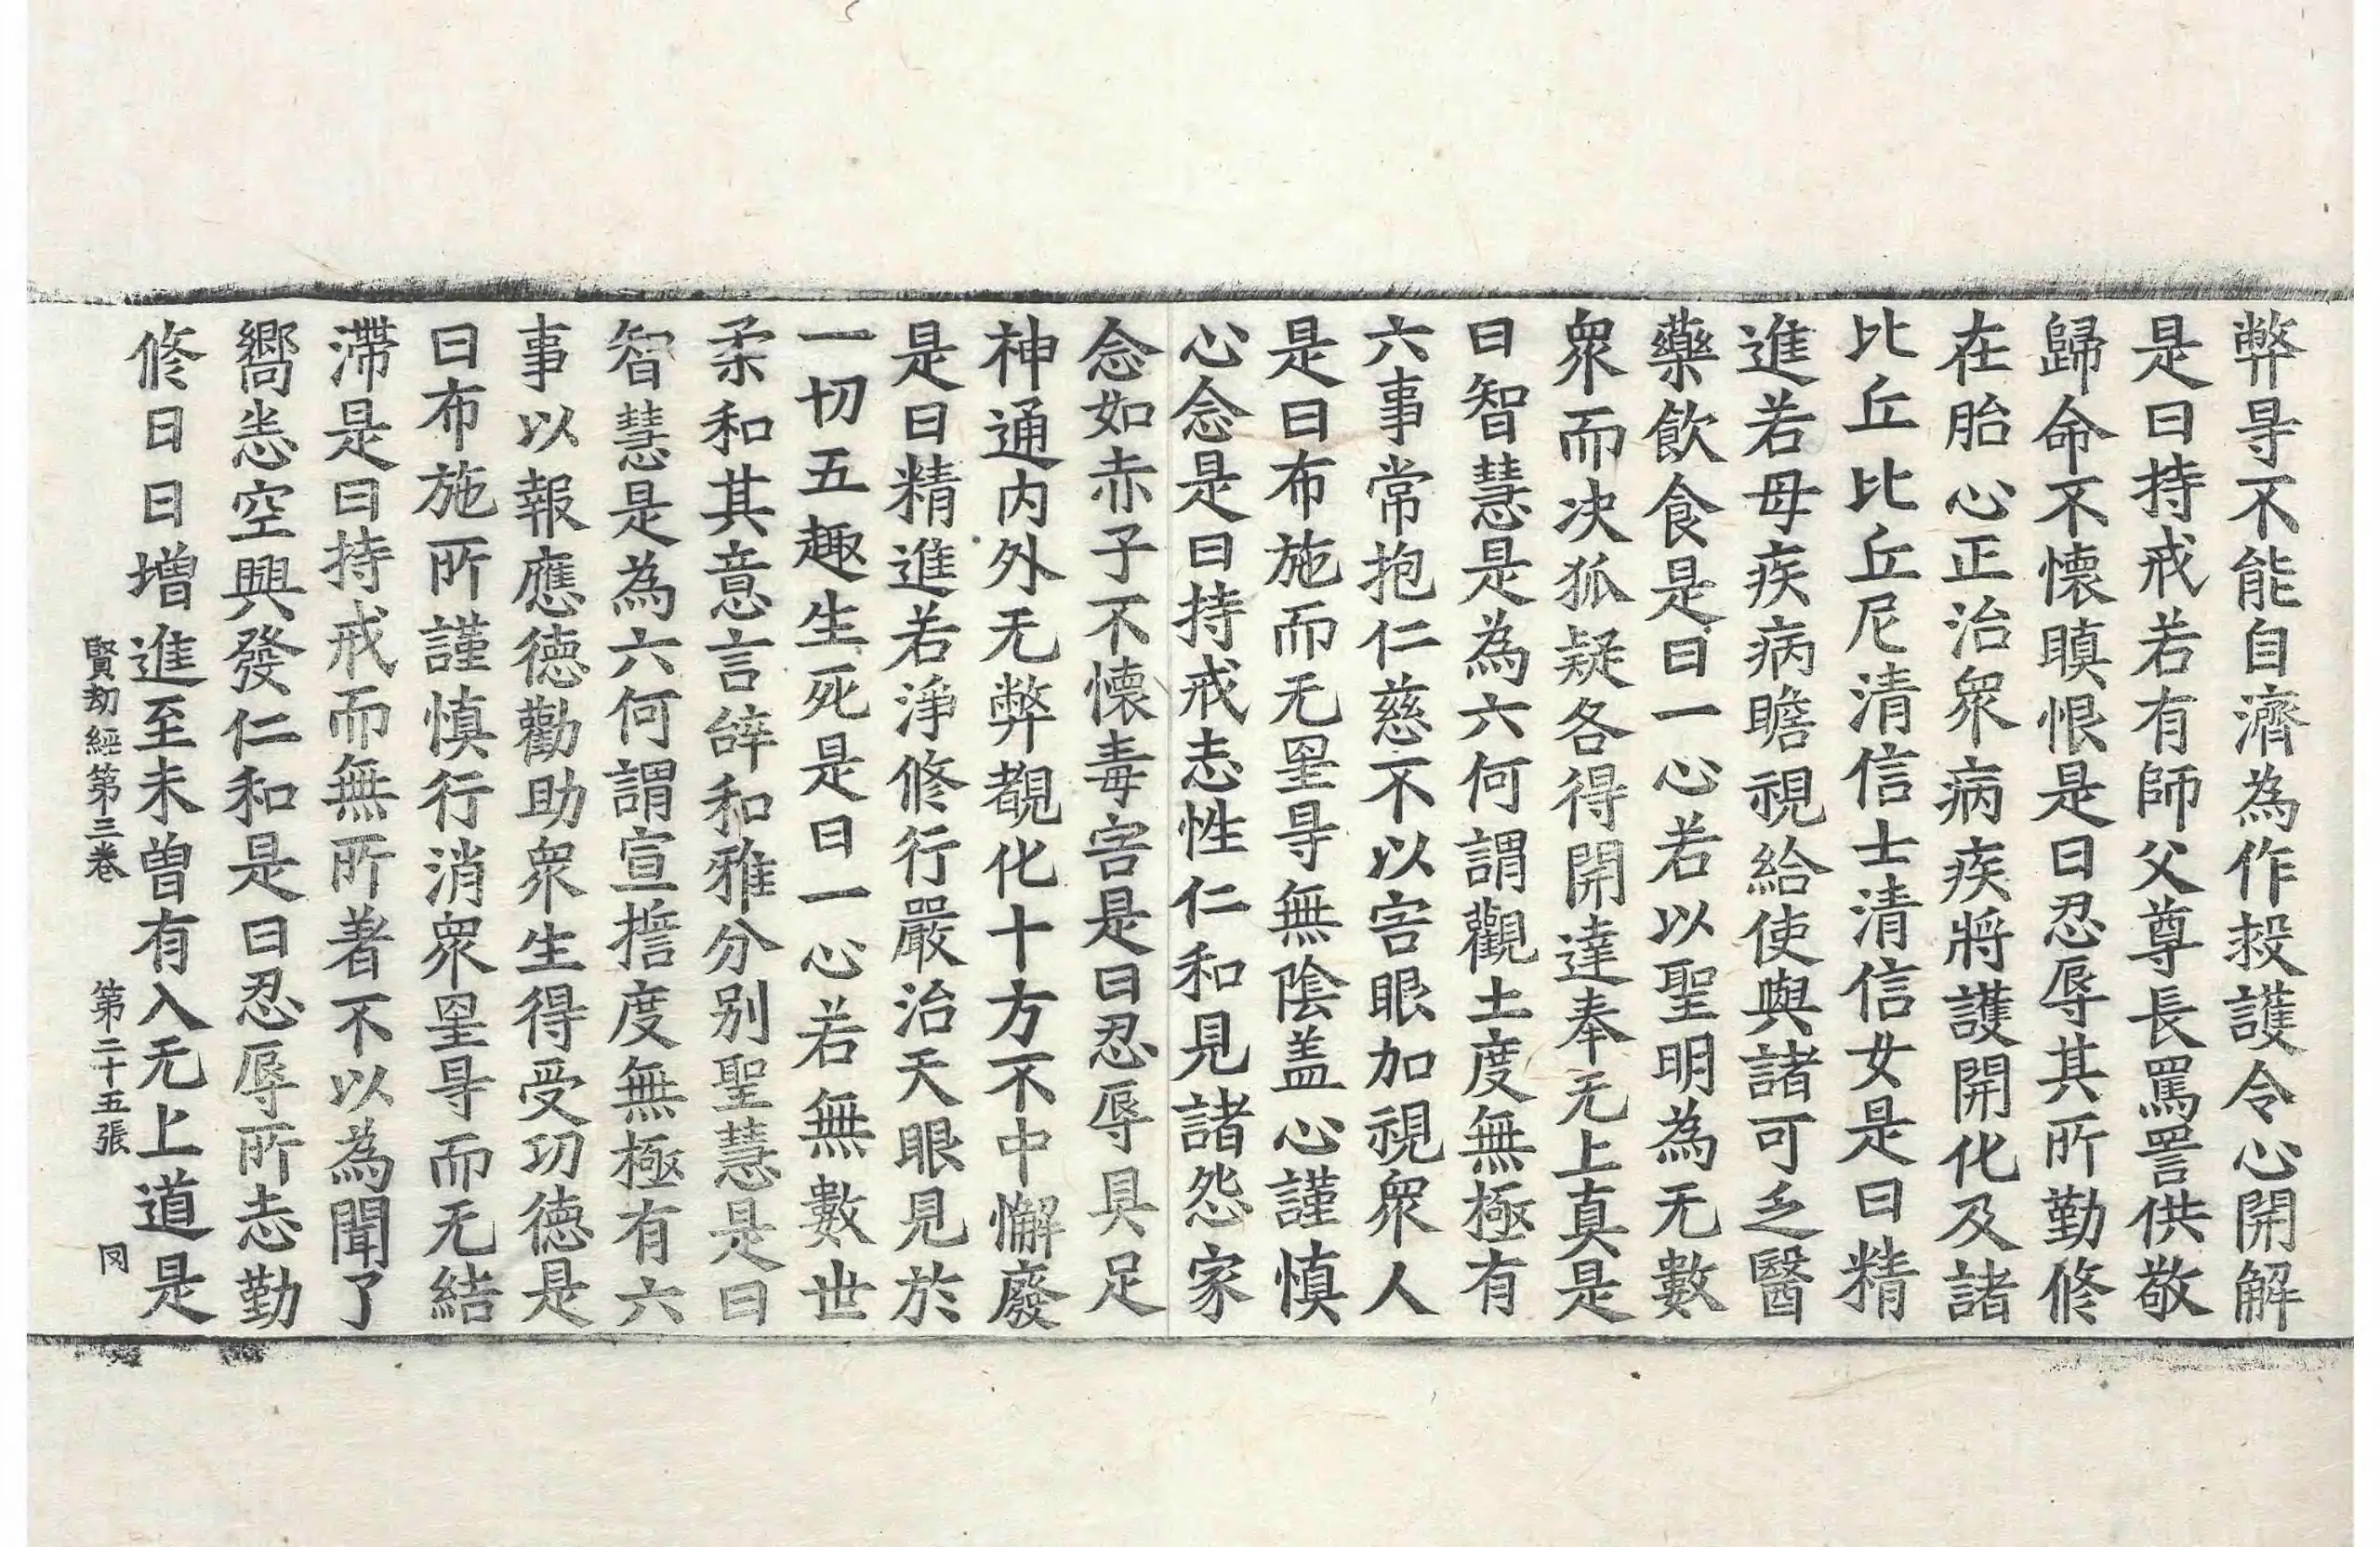 弊㝵不能自濟為作救護令心開解
是曰持戒若有師父尊長罵詈供敬
歸命不懷瞋恨是曰忍辱其所勤修
在胎心正治衆病疾將護開化及諸
比丘比丘尼清信士清信女是曰精
進若母疾病瞻視給使與諸可乏醫
藥飲食是曰一心若以聖明為无數
衆而决狐疑各得開達奉无上真是
曰智慧是為六何謂觀土度無極有
六事常抱仁慈不以害眼加視衆人
是曰布施而无罣㝵無陰盖心謹慎
心念是曰持戒志性仁和見諸怨家
念如赤子不懷毒害是曰忍辱具足
神通內外无弊覩化十方不中懈廢
是曰精進若淨修行嚴治天眼見於
一切五趣生死是曰一心若無數世
柔和其意言辝和雅分別聖慧是曰
智慧是為六何謂宣㨷度無極有六
事以報應德勸助衆生得受功德是
曰布施所謹慎行消衆罣㝵而无結
滯是曰持戒而無所著不以為聞了
嚮悉空興發仁和是曰忍辱所志勤
修日日增進至未曾有入无上道是
賢劫經第三卷　第二十五張　罔